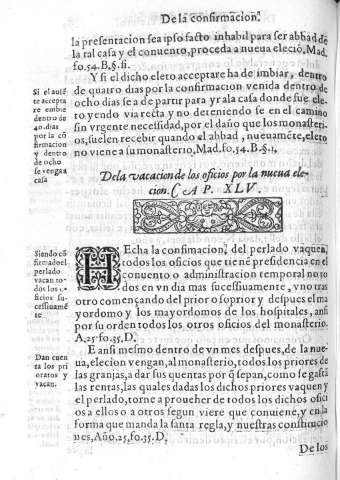 De la confirmacion.
la presentacion sea ipso facto inhabil para ser abbad de
la tal casa y el conuento, proceda a nueua eleciõ, Mad.
fo.54.B.§.fi.
Y si el dicho eleto acceptare ha de imbiar, dentro
de quatro dias por la confirmacion venida dentro de
ocho dias se a de partir para yr ala casa donde fue ele-
to yendo via recta y no deteniendo se en el camino
sin vrgente necessidad, por el daño que los monasteri-
os, suelen recebir quando el abbad, nueuamẽte, eleto
no viene a su monasterio, Mad.fo.54.B.§.1.
Si el autẽ
te accepta
re embie
dentro de
40.dias
por la cõ
firmacion
y dentro
de ocho
se venga a
casa
De la vacacion de los oficios por la nueua ele-
cion. CAP. XLV.
HEcha la confimacion, del perlado vaquen,
todos los oficios que tienẽ presidencia en el
conuento o administracion temporal no to
dos en vn dia mas sucessiuamente, vno tras
otro començando del prior o soprior y despues el ma
yordomo y los mayordomos de los hospitales, ansi
por su orden todos los otros oficios del monasterio.
A.25.fo.35.D.
Siendo cõ
firmado el
perlado
vacan to-
dos los o-
ficios su-
cessiuamẽ
te
E ansi mesmo dentro de vn mes despues, de la nue-
ua, eleccion vengan, al monasterio, todos los priores de
las granjas, a dar sus quentas por q̃ sepan, como se gastã
las rentas, las quales dadas los dichos priores vaquen y
el perlado, torne a proueher de todos los dichos ofici
os a ellos o a otros segun viere que conuiene, y en la
forma que manda la santa regla, y nuestras constitucio
nes, Año.25.fo.35.D.
Dan cuen
ta los pri
oratos y
vacan.
De los